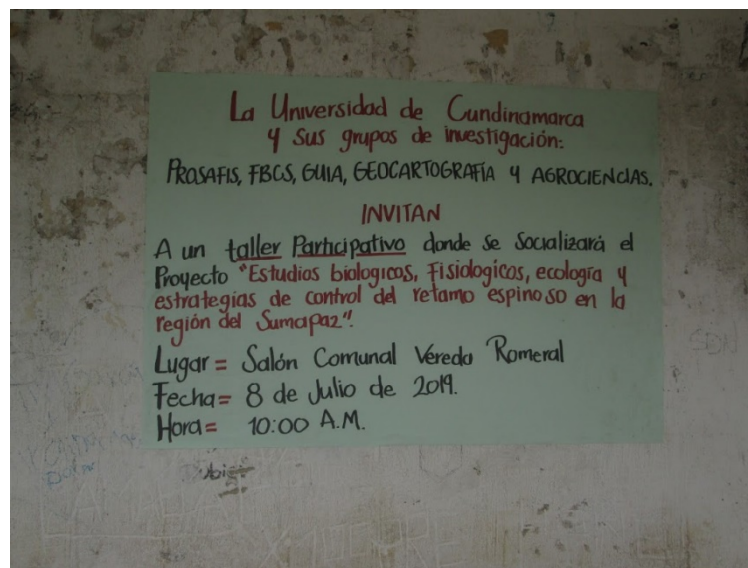 La Universidad de Cundinamarca
y sus grupos de investigación:
PROSAFIS, FBCS, GUIA, GEOCARTOGRAFÍA Y AGROCIENCIAS.
INVITAN
A un taller Participativo donde se Socializará el
Proyecto "Estudios biologicos, Fisiologicos, ecología y
estrategias de control del retamo espinoso en la
región del Sumapaz".
Lugar= Salón Comunal Vereda Romeral
Fecha= 8 de Julio de 2019.
Hora= 10:00 A.M.